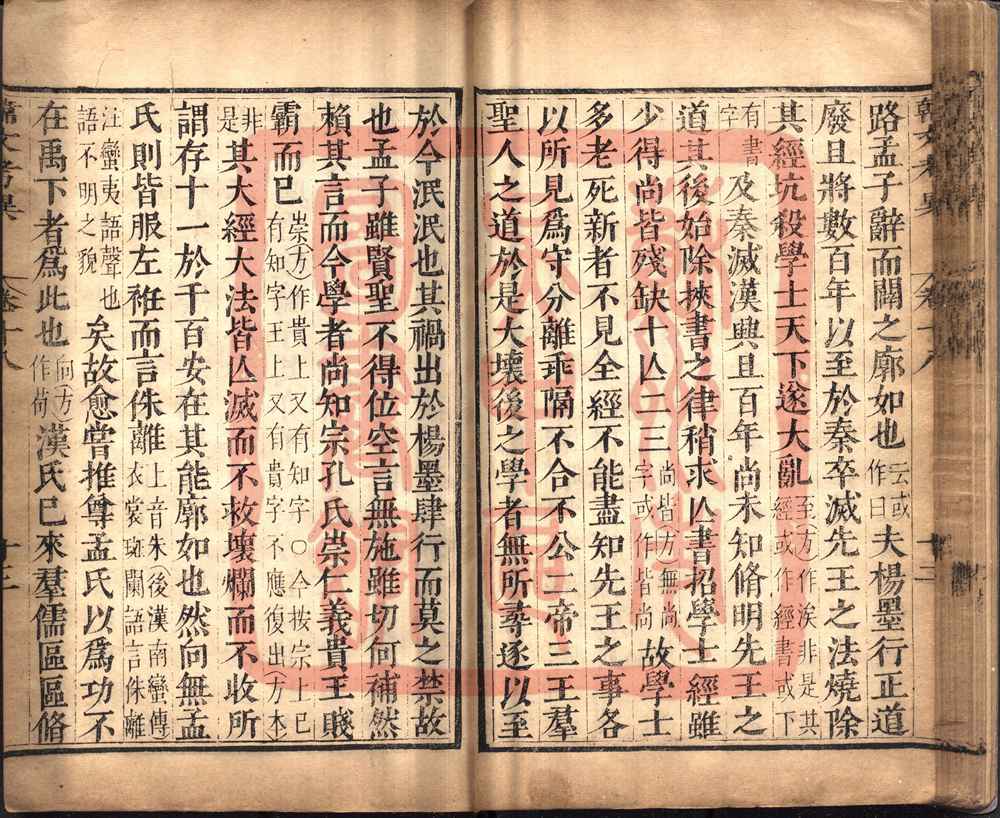 路孟子辭而闢之廓如也云或作曰夫楊墨行正道
廢且將數百年以至於秦卒滅先王之法燒除
其經坑殺學士天下遂大亂至方作涘非是其經或作經書或下
有書字及秦滅漢興且百年尚未知脩明先王之
道其後始除挾書之律稍求亾書招學士經雖
少得尚皆殘缺十亾二三尚皆方無尚字或作皆尚故學士
多老死新者不見全經不能盡知先王之事各
以所見爲守分離乖隔不合不公二帝三王羣
聖人之道於是大壞後之學者無所尋逐以至
於今泯泯也其禍出於楊墨肆行而莫之禁故
也孟子雖賢聖不得位空言無施雖切何補然
賴其言而今學者尚知宗孔氏崇仁義貴王賤
霸而已崇方作貴上又有知字〇今按宗上已有知字王上又有貴字不應復出方本
非是其大經大法皆亾滅而不救壞爛而不收所
謂存十一於千百安在其能廓如也然向無孟
氏則皆服左衽而言侏離上音朱後漢南蠻傳衣裳斑闌語言侏離
注蠻夷語聲也語不明之貌矣故愈嘗推尊孟氏以爲功不
在禹下者爲此也向方作尚漢氏已來羣儒區區脩
韓文考異
卷十八
十三